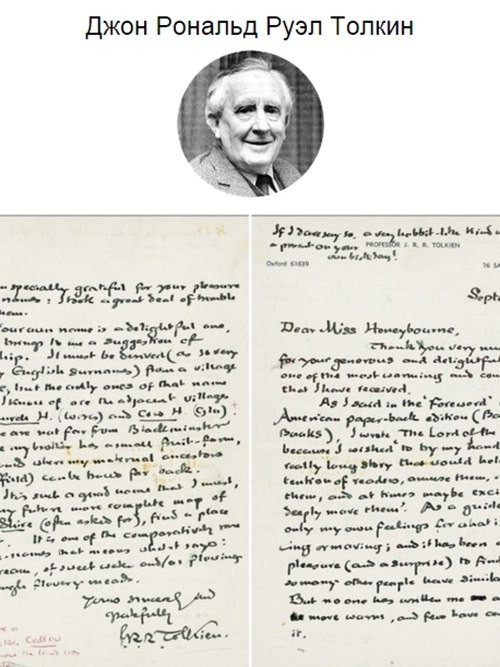 Джон Рональд Руэл Толкин
specially grateful for your pleasure
names: I took a great deal of trouble
your own name is a delightful one,
brings to me a suggestion of
ship. It must be derived (as so very
English surnames) from a village
but the only ones of that name
I know of are the adjacent villages
Church H. (Worcs) and Cow H. (Glos)
are not far from Blackminster
my brother has a small fruit-farm,
and where my maternal ancestors
field) can be traced far back.
It is such a good name that I must,
my future more complete map of
Shire (often asked for), find a place
It is one of the comparatively rare
names that means what it says:
of sweet water and/or flowing
flowery meads.
Yours sincerely and
gratefully
J.R.R. Tolkien.
If I dare say so, a very hobbit-like kind
a present on your
own birthday!
PROFESSOR J. R. R. TOLKIEN
Oxford 61639
76 SA
Sept
Dear Miss Honeybourne,
Thank you very mu
for your generous and delightful
one of the most warming and
that I have received.
As I said in the 'Foreword'
American paper-back edition (Ba
Books), I wrote The Lord of the
because I wished 'to try my hand
really long story that would hol
tention of readers, amuse them,
them, and at times maybe exc
deeply move them'. As a guide
only my own feelings for what i
ing or moving; and it has been
pleasure (and a surprise) to find
so many other people have simila
But no one has written me a
more warm, and few have
it.